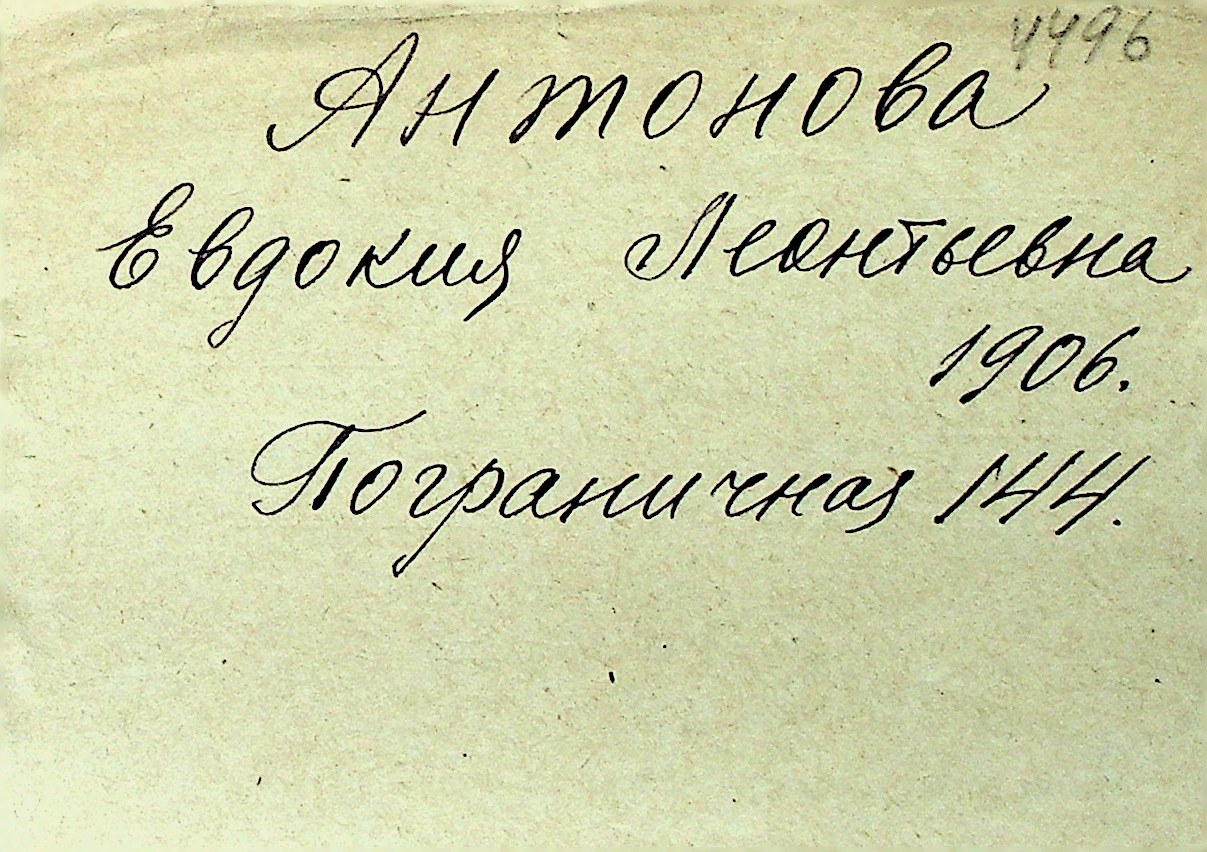 4496
Антонова
Евдокия Леонтьевна
1906.
Пограничная 144.